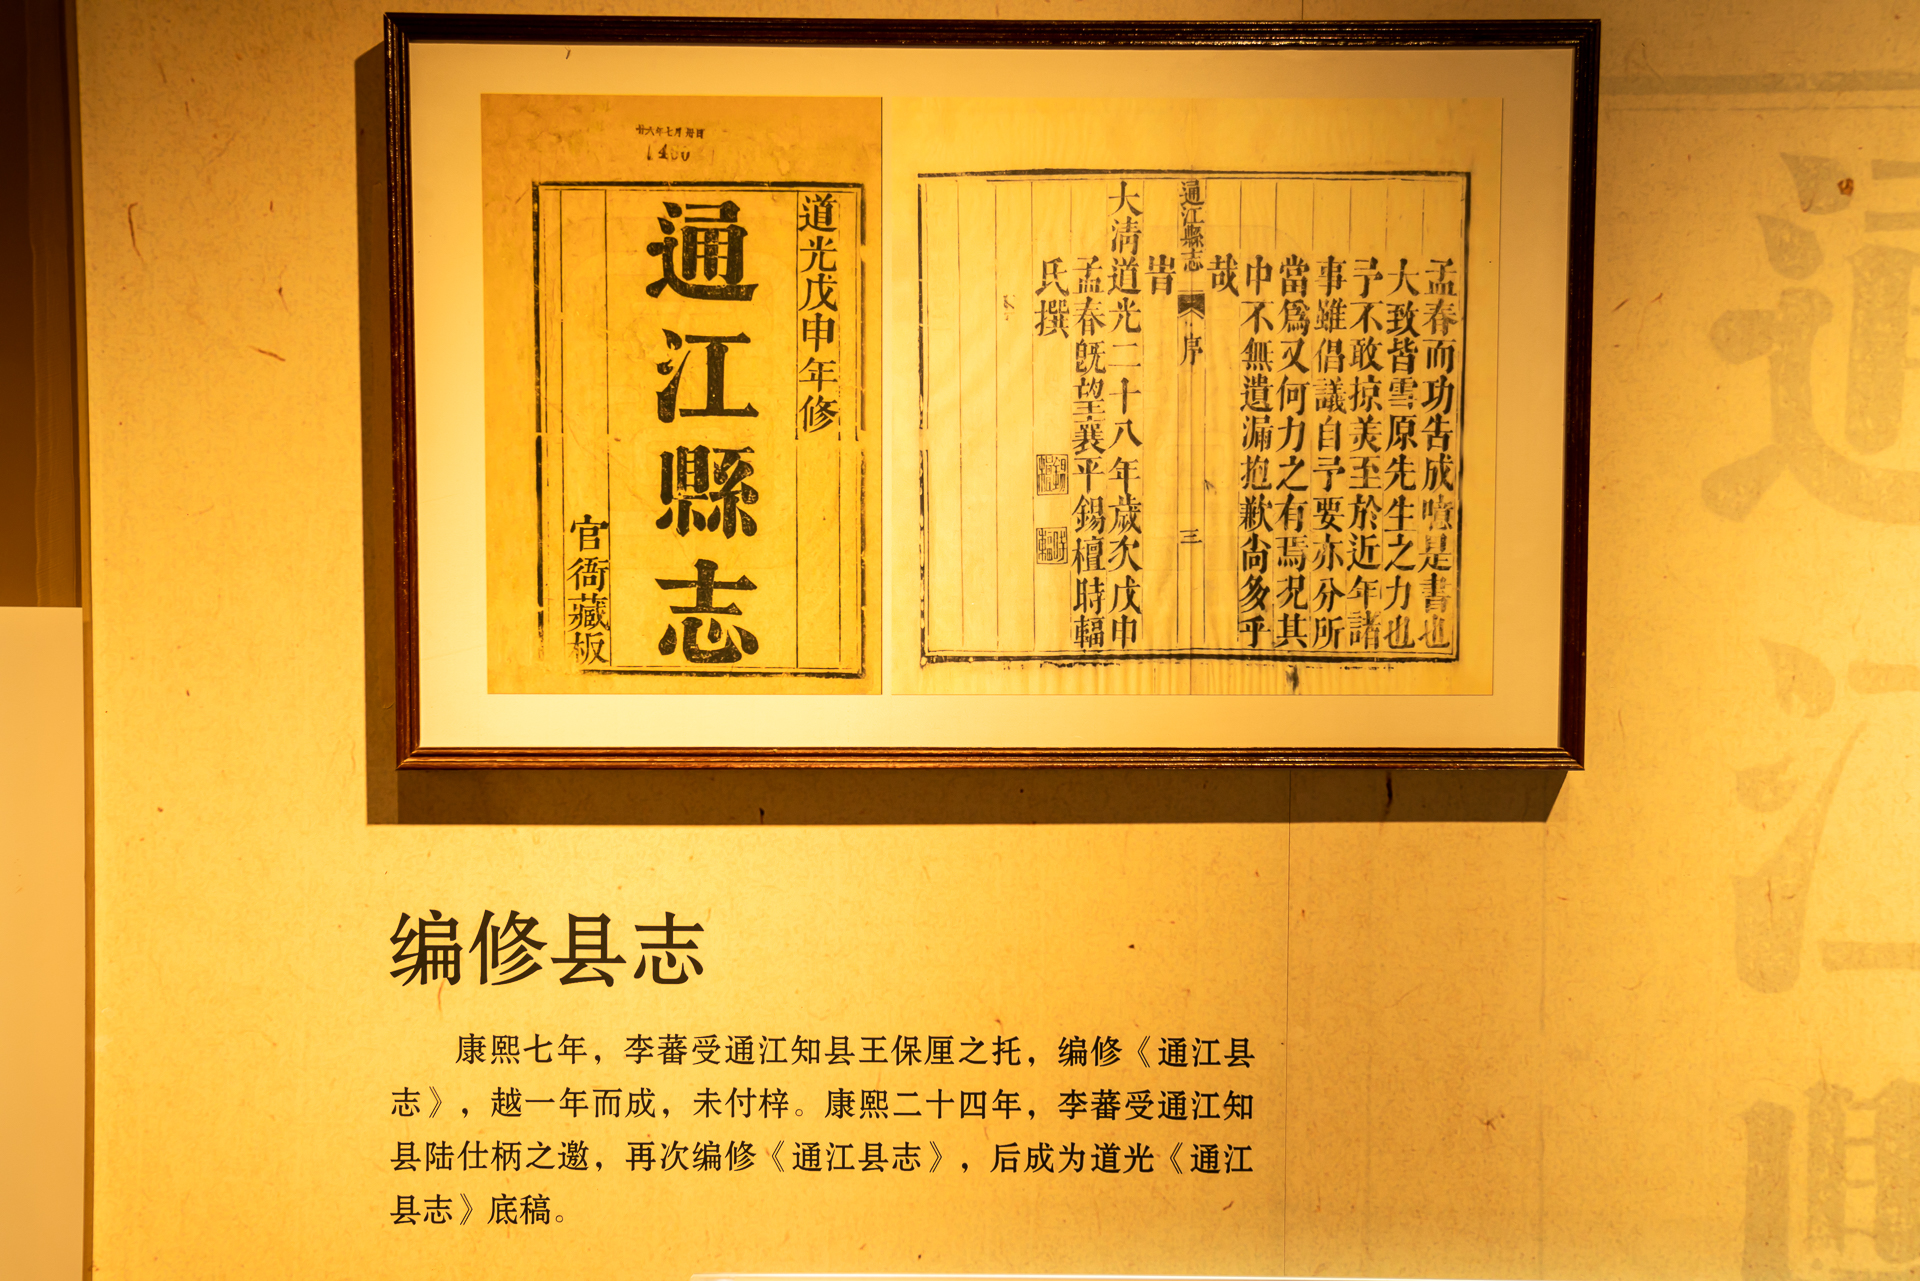 廿六年七月卅日
道光戊申年修
通江縣志
官衙藏板
孟春而功告成噫是書也
大致皆雪原先生之力也
予不敢掠美至於近年諸
事雖倡議自予要亦分所
當為又何力之有焉況其
中不無遺漏抱歉尚多乎
哉
通江縣志 序 三
旹
大清道光二十八年歲次戊申
孟春既望襄平錫檀時輻
氏撰
编修县志
康熙七年，李蕃受通江知县王保厘之托，编修《通江县
志》，越一年而成，未付梓。康熙二十四年，李蕃受通江知
县陆仕柄之邀，再次编修《通江县志》，后成为道光《通江
县志》底稿。